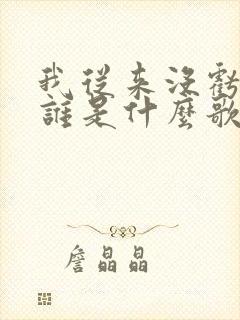 我從来沒虧
誰是什麼歌
詹晶晶